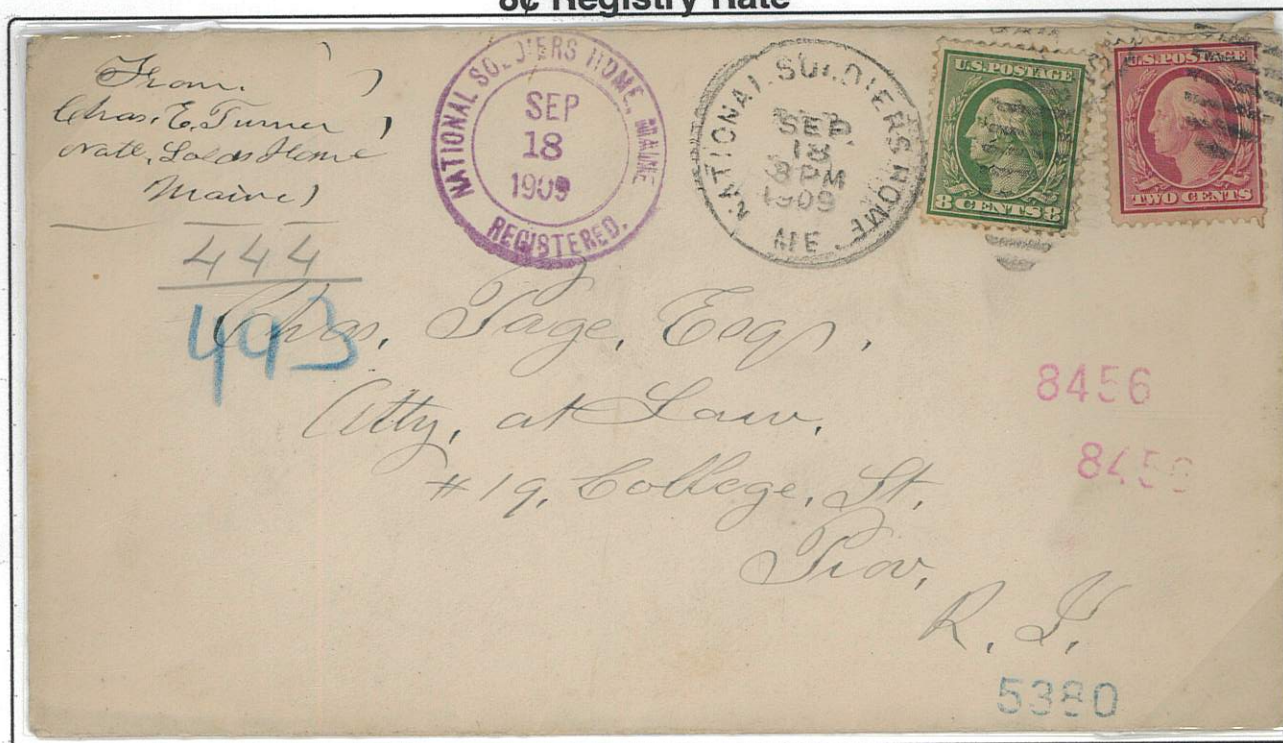 8¢ Registry Rate
From.
Chas. E. Turner
Natl. Solds Home
Maine
NATIONAL SOLDIERS HOME, MAINE
SEP
18
1909
REGISTERED.
NATIONAL SOLDIERS HOME.
SEP
18
8 PM
1909
ME.
U.S. POSTAGE
8 CENTS 8
U.S. POSTAGE
TWO CENTS
444
493
Chas. Page, Esqr,
Atty, at Law,
#19, College, St,
Prov,
R. I.
8456
8456
5380